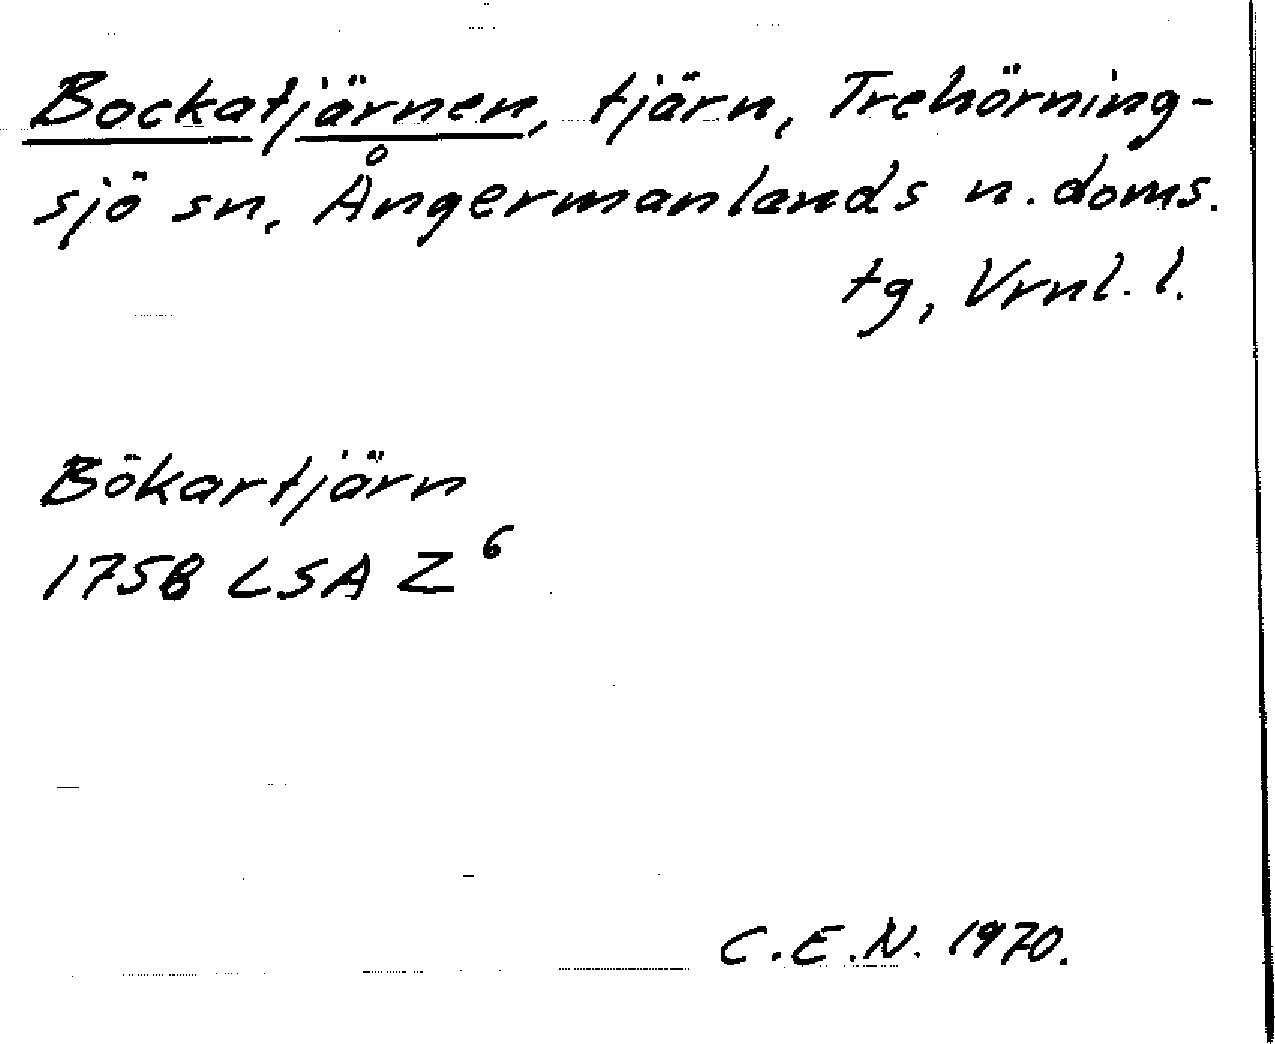 Bockatjärnen, tjärn, Trehörning-
sjö sn, Ångermanlands n. doms.
tg, Vrnl. l.
Bökartjärn
1758 LSA Z 6
C.E.N. 1970.